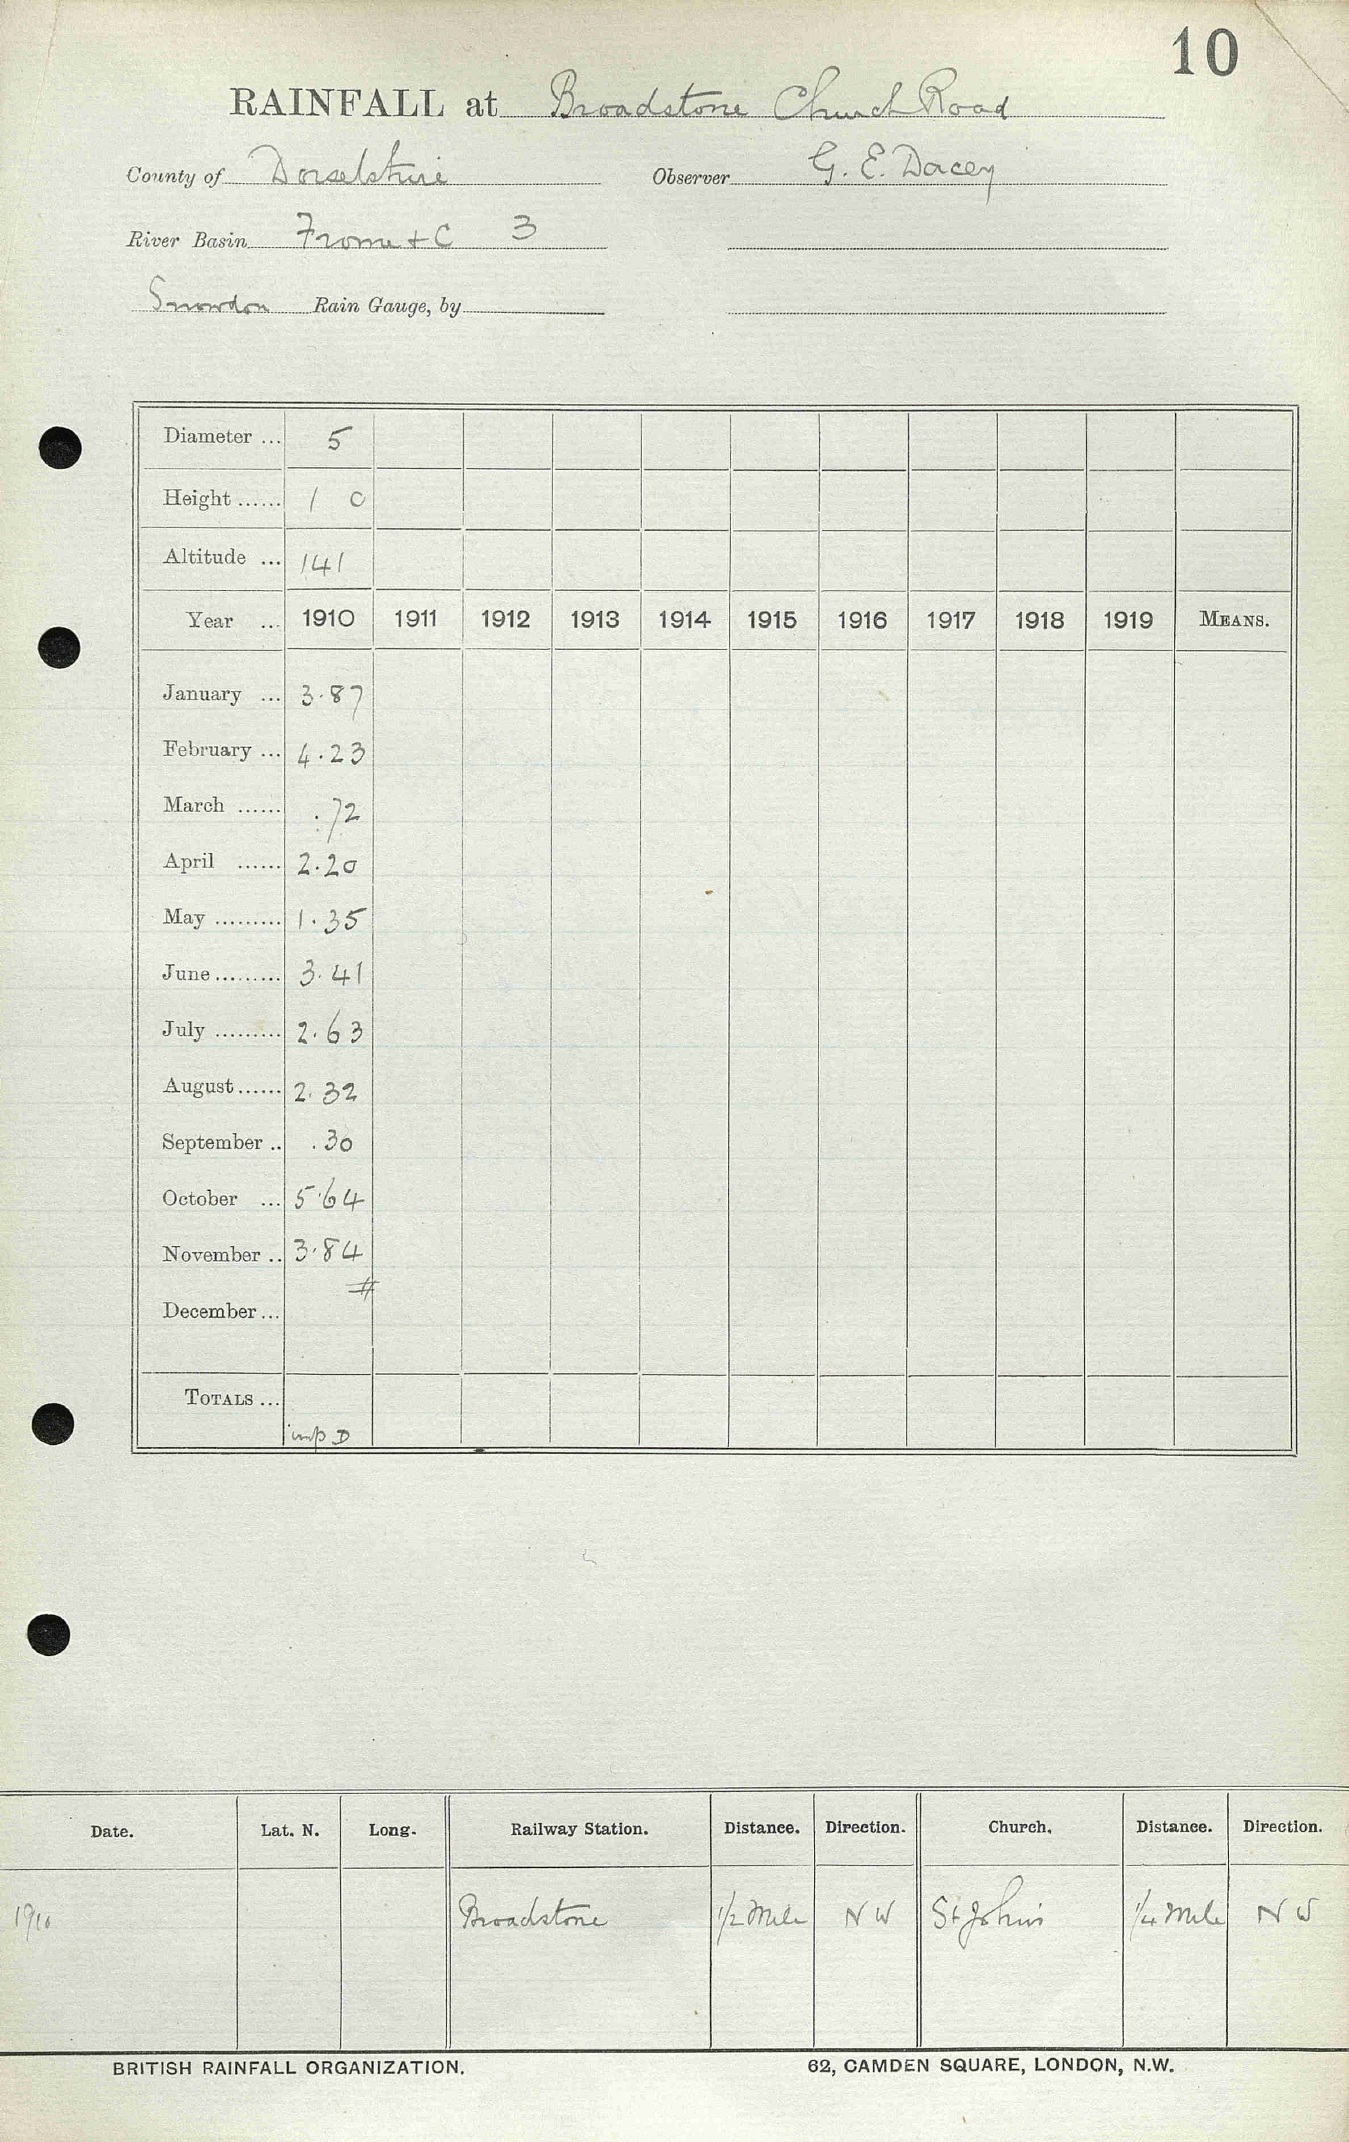 10
RAINFALL at Broadstone Church Road
County of Dorsetshire Observer G. E. Dacey
River Basin Frome + C 3
Snowdon Rain Gauge, by
Diameter ... 5
Height ...... 1 0
Altitude ... 141
Year ... 1910 1911 1912 1913 1914 1915 1916 1917 1918 1919 MEANS.
January ... 3.87
February ... 4.23
March ...... .72
April ...... 2.20
May ......... 1.35
June ......... 3.41
July ......... 2.63
August ...... 2.32
September .. .30
October ... 5.64
November .. 3.84
#
December ...
TOTALS ...
imp D
Date. Lat. N. Long. Railway Station. Distance. Direction. Church. Distance. Direction.
1910 Broadstone 1/2 Mile NW St John's 1/4 Mile NW
BRITISH RAINFALL ORGANIZATION. 62, CAMDEN SQUARE, LONDON, N.W.